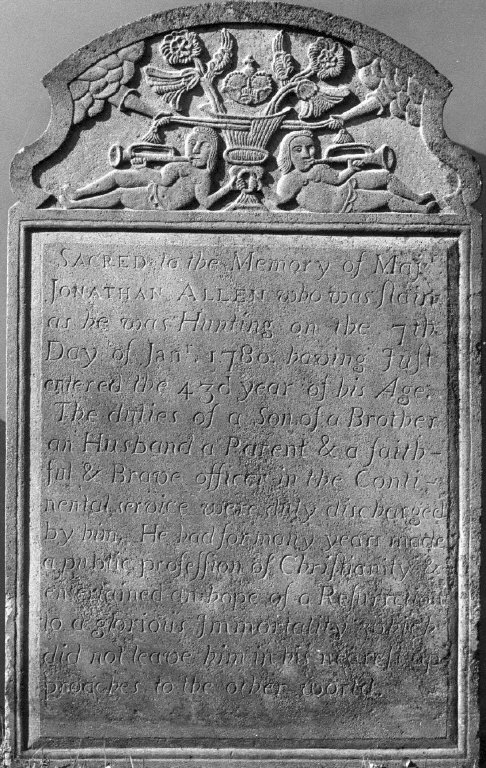 SACRED to the Memory of Majr.
JONATHAN ALLEN who was ſlain
as he was Hunting on the 7th
Day of Janr. 1780, having Juſt
entered the 43d year of his Age.
The duties of a Son, of a Brother
an Huſband a Parent & a faith-
ful & Brave officer in the Conti-
nental service were duly discharged
by him. He had for many years made
a public profeſſion of Chriſtianity &
entertained an hope of a Reſurrection
to a glorious Immortality which
did not leave him in his neareſt ap-
proaches to the other world.